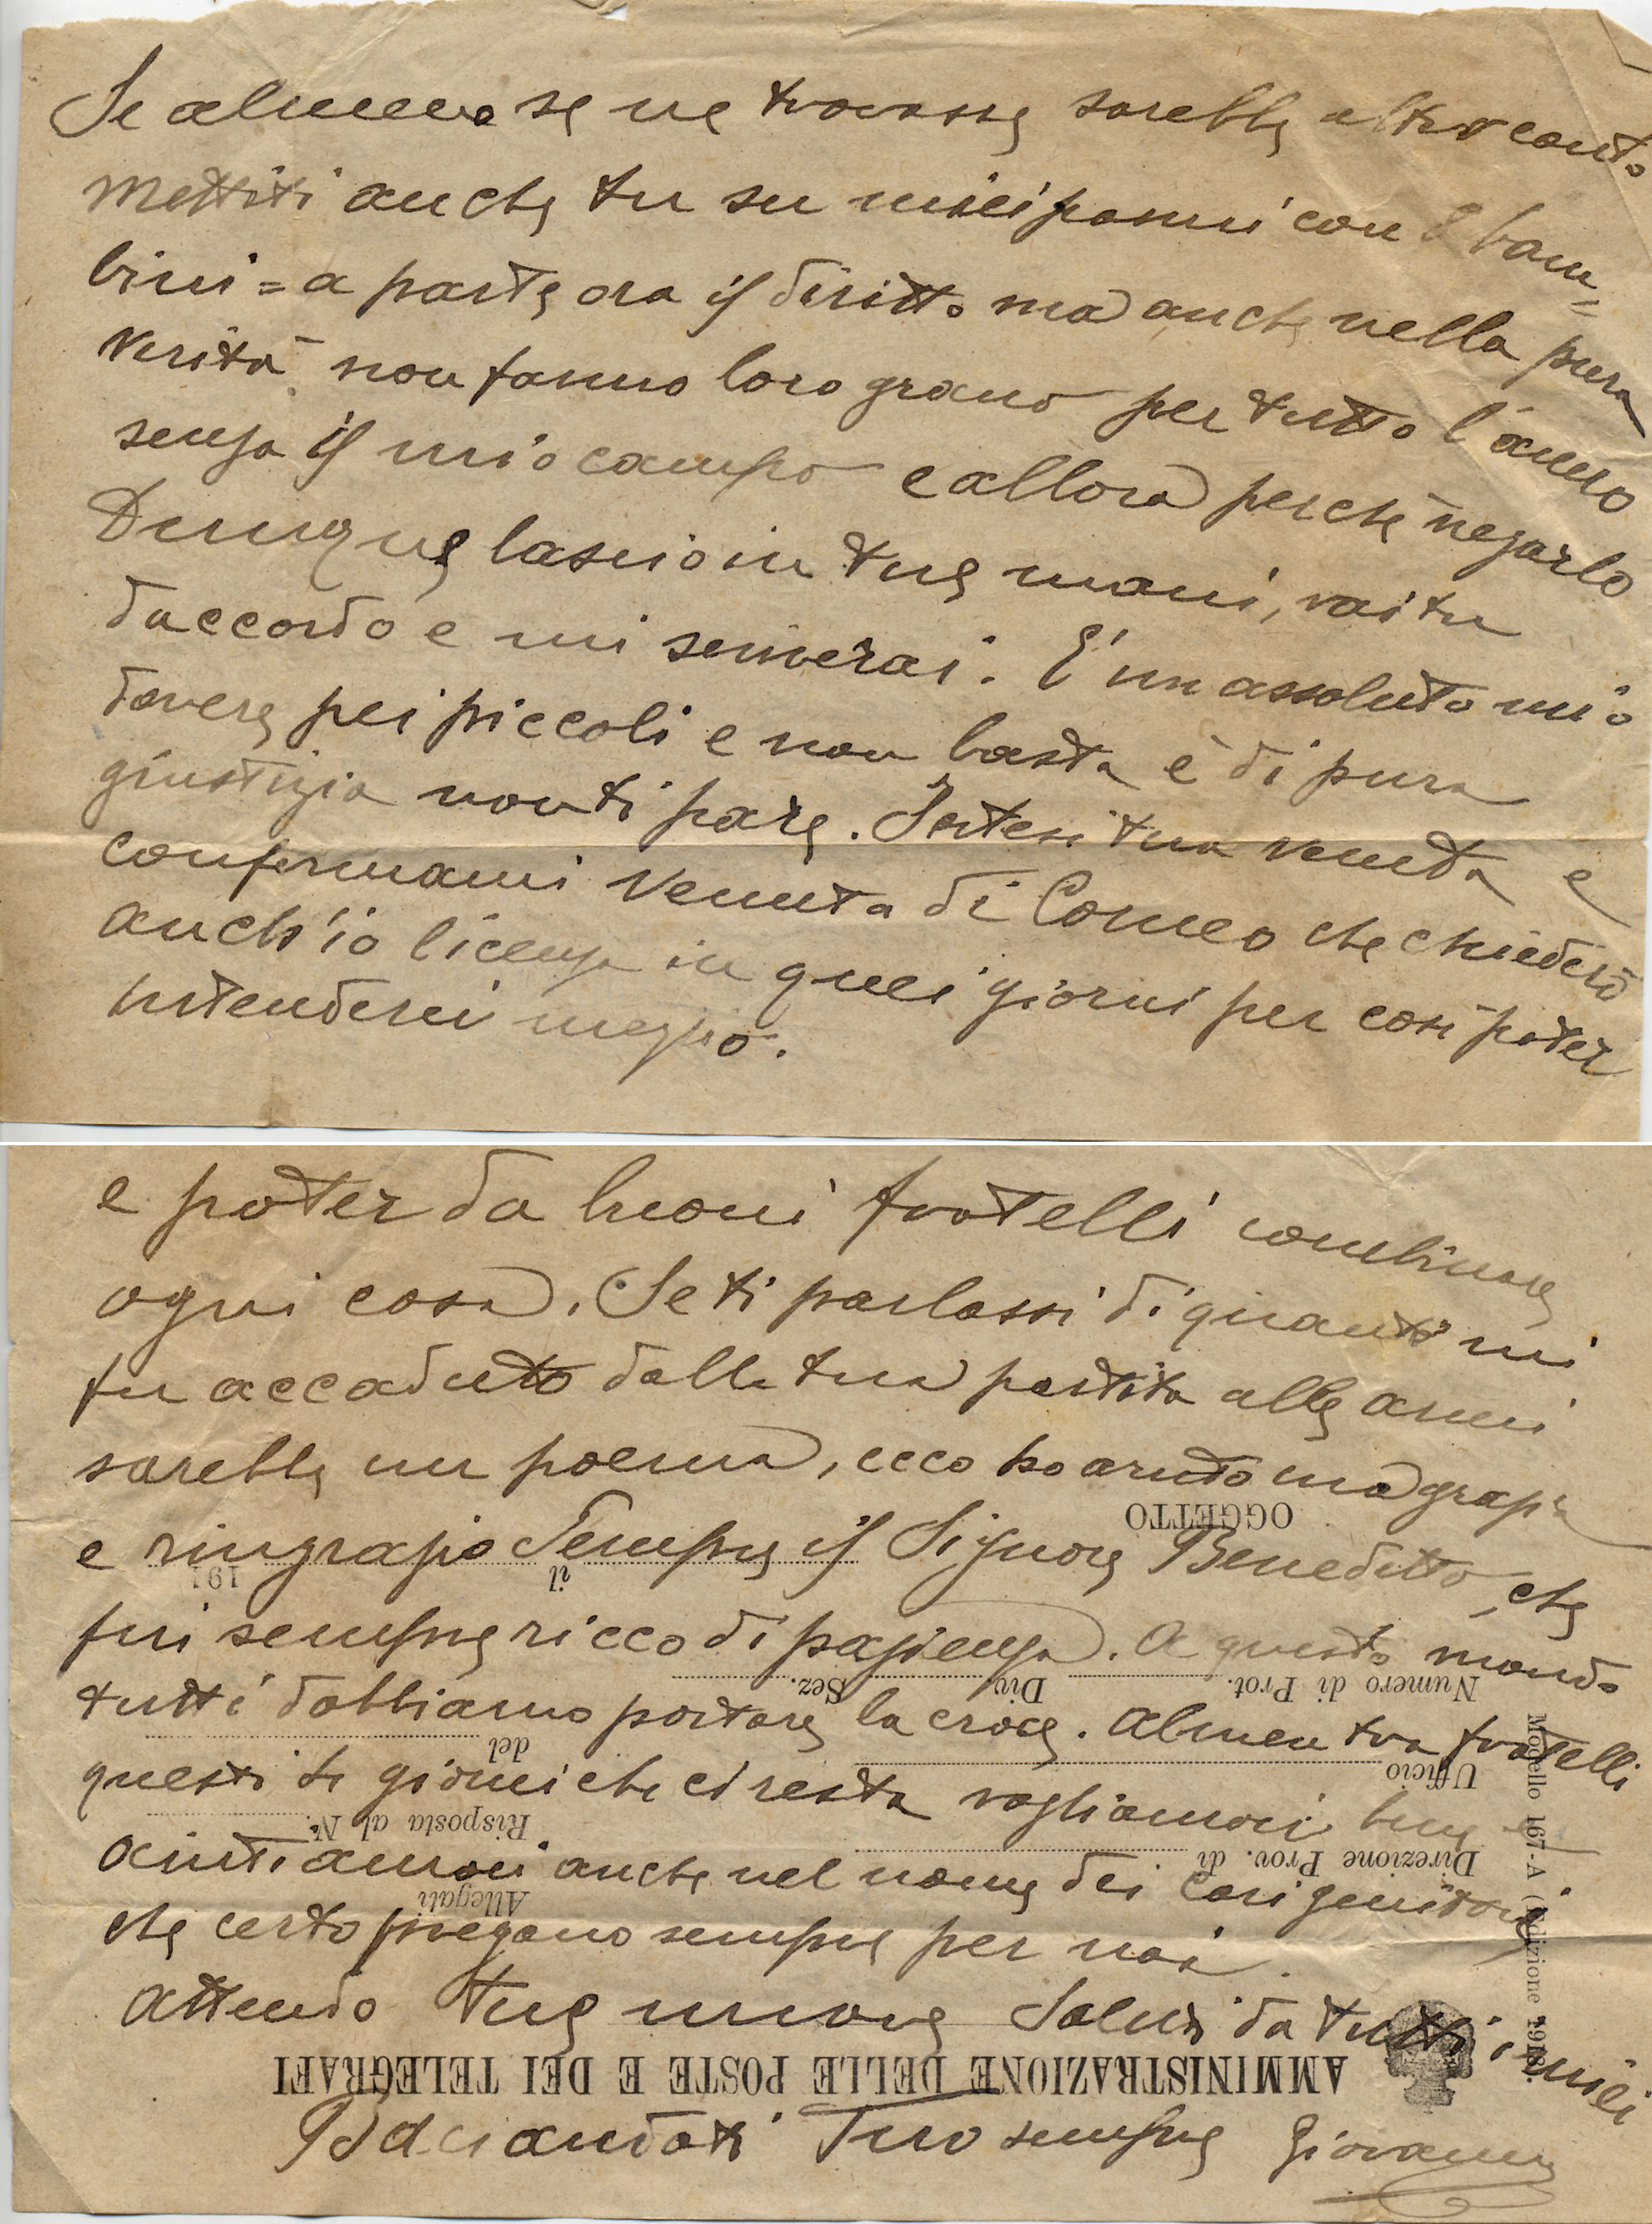 Se almeno se ne trovasse sarebbe altro conto
Mettiti anche tu su miei panni con 8 bam=
bini = a parte ora il diritto ma anche nella pura
verità non fanno loro grano per tutto l'anno
senza il mio campo e allora perché negarlo
Dunque lascio in tue mani, vai tu
daccordo e mi scriverai. E' un assoluto mio
dovere pei piccoli e non basta è di pura
giustizia non ti pare. Intesi tua venuta e
confermami venuta di Comeo che chiederò
anch'io licenza in quei giorni per così poter
intenderci meglio.
e poter da buoni fratelli combinare
ogni cosa. Se ti parlassi di quanto mi
fu accaduto dalla tua partita alle armi
sarebbe un poema, ecco ho avuto ma grazia
e ringrazio sempre il Signore Benedetto, che
fui sempre ricco di pazienza. A questo mondo
tutti dobbiamo portare la croce. Almeno tra fratelli
questi giorni che ci resta vogliamoci bene e
aiutiamoci anche nel nome dei cari genitori
che certo pregano sempre per noi.
Attendo tue nuove Saluti da tutti i miei
Baciandoti Tuo sempre Giovanni
AMMINISTRAZIONE DELLE POSTE E DEI TELEGRAFI
Allegati
Direzione Prov. di
Risposta al N.
Ufficio
del
Numero di Prot.
Div.
Sez.
il
191
OGGETTO
Modello 167-A (Edizione 1918).